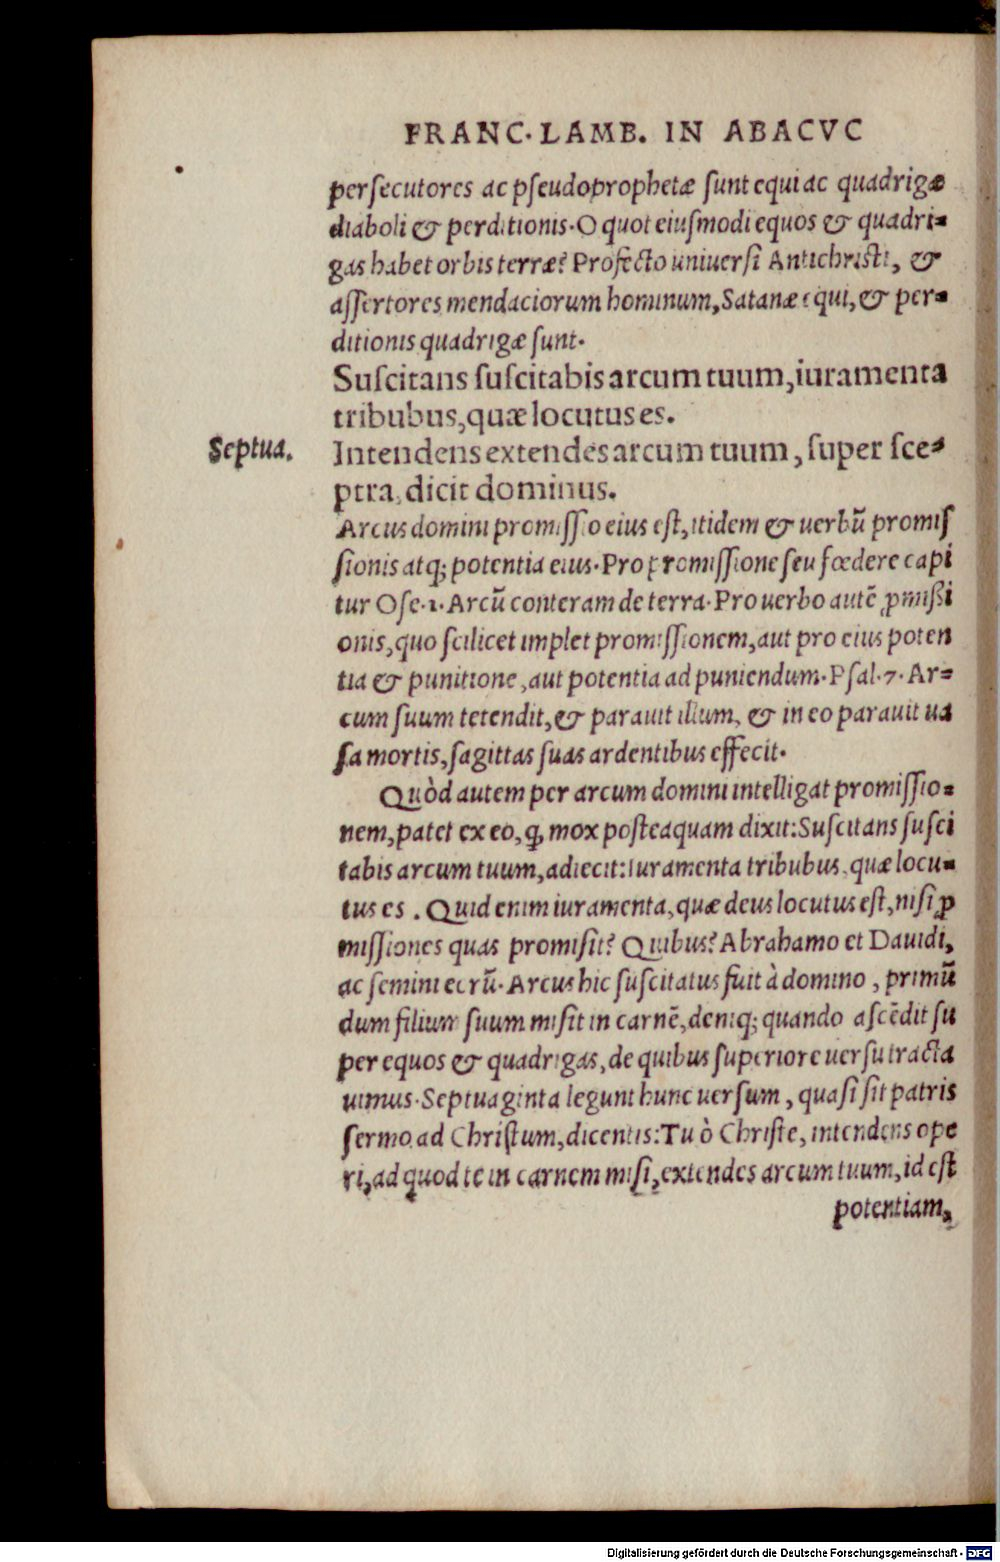 FRANC. LAMB. IN ABACVC
persecutores ac pseudoprophetæ sunt equi ac quadrigæ
diaboli & perditionis. O quot eiusmodi equos & quadri=
gas habet orbis terræ? Profecto uniuersi Antichristi, &
assertores mendaciorum hominum, Satanæ equi, & per=
ditionis quadrigæ sunt.
Suscitans suscitabis arcum tuum, iuramenta
tribubus, quæ locutus es.
Septua.
Intendens extendes arcum tuum, super sce=
ptra, dicit dominus.
Arcus domini promissio eius est, itidem & uerbū promis
sionis atq; potentia eius. Pro promissione seu fœdere capi
tur Ose. 1. Arcū conteram de terra. Pro uerbo autē ꝓmissi
onis, quo scilicet implet promissionem, aut pro eius poten
tia & punitione, aut potentia ad puniendum. Psal. 7. Ar=
cum suum tetendit, & parauit illum, & in eo parauit ua
sa mortis, sagittas suas ardentibus effecit.
Quòd autem per arcum domini intelligat promissio=
nem, patet ex eo, ꝙ mox posteaquam dixit: Suscitans susci
tabis arcum tuum, adiecit: Iuramenta tribubus, quæ locu=
tus es. Quid enim iuramenta, quæ deus locutus est, nisi ꝓ
missiones quas promisit? Quibus? Abrahamo et Dauidi,
ac semini eorū. Arcus hic suscitatus fuit à domino, primū
dum filium suum misit in carnē, deniq; quando ascēdit su
per equos & quadrigas, de quibus superiore uersu tracta
uimus. Septuaginta legunt hunc uersum, quasi sit patris
sermo ad Christum, dicentis: Tu ò Christe, intendens ope
ri, ad quod te in carnem misi, extendes arcum tuum, id est
potentiam,
Digitalisierung gefördert durch die Deutsche Forschungsgemeinschaft - DFG